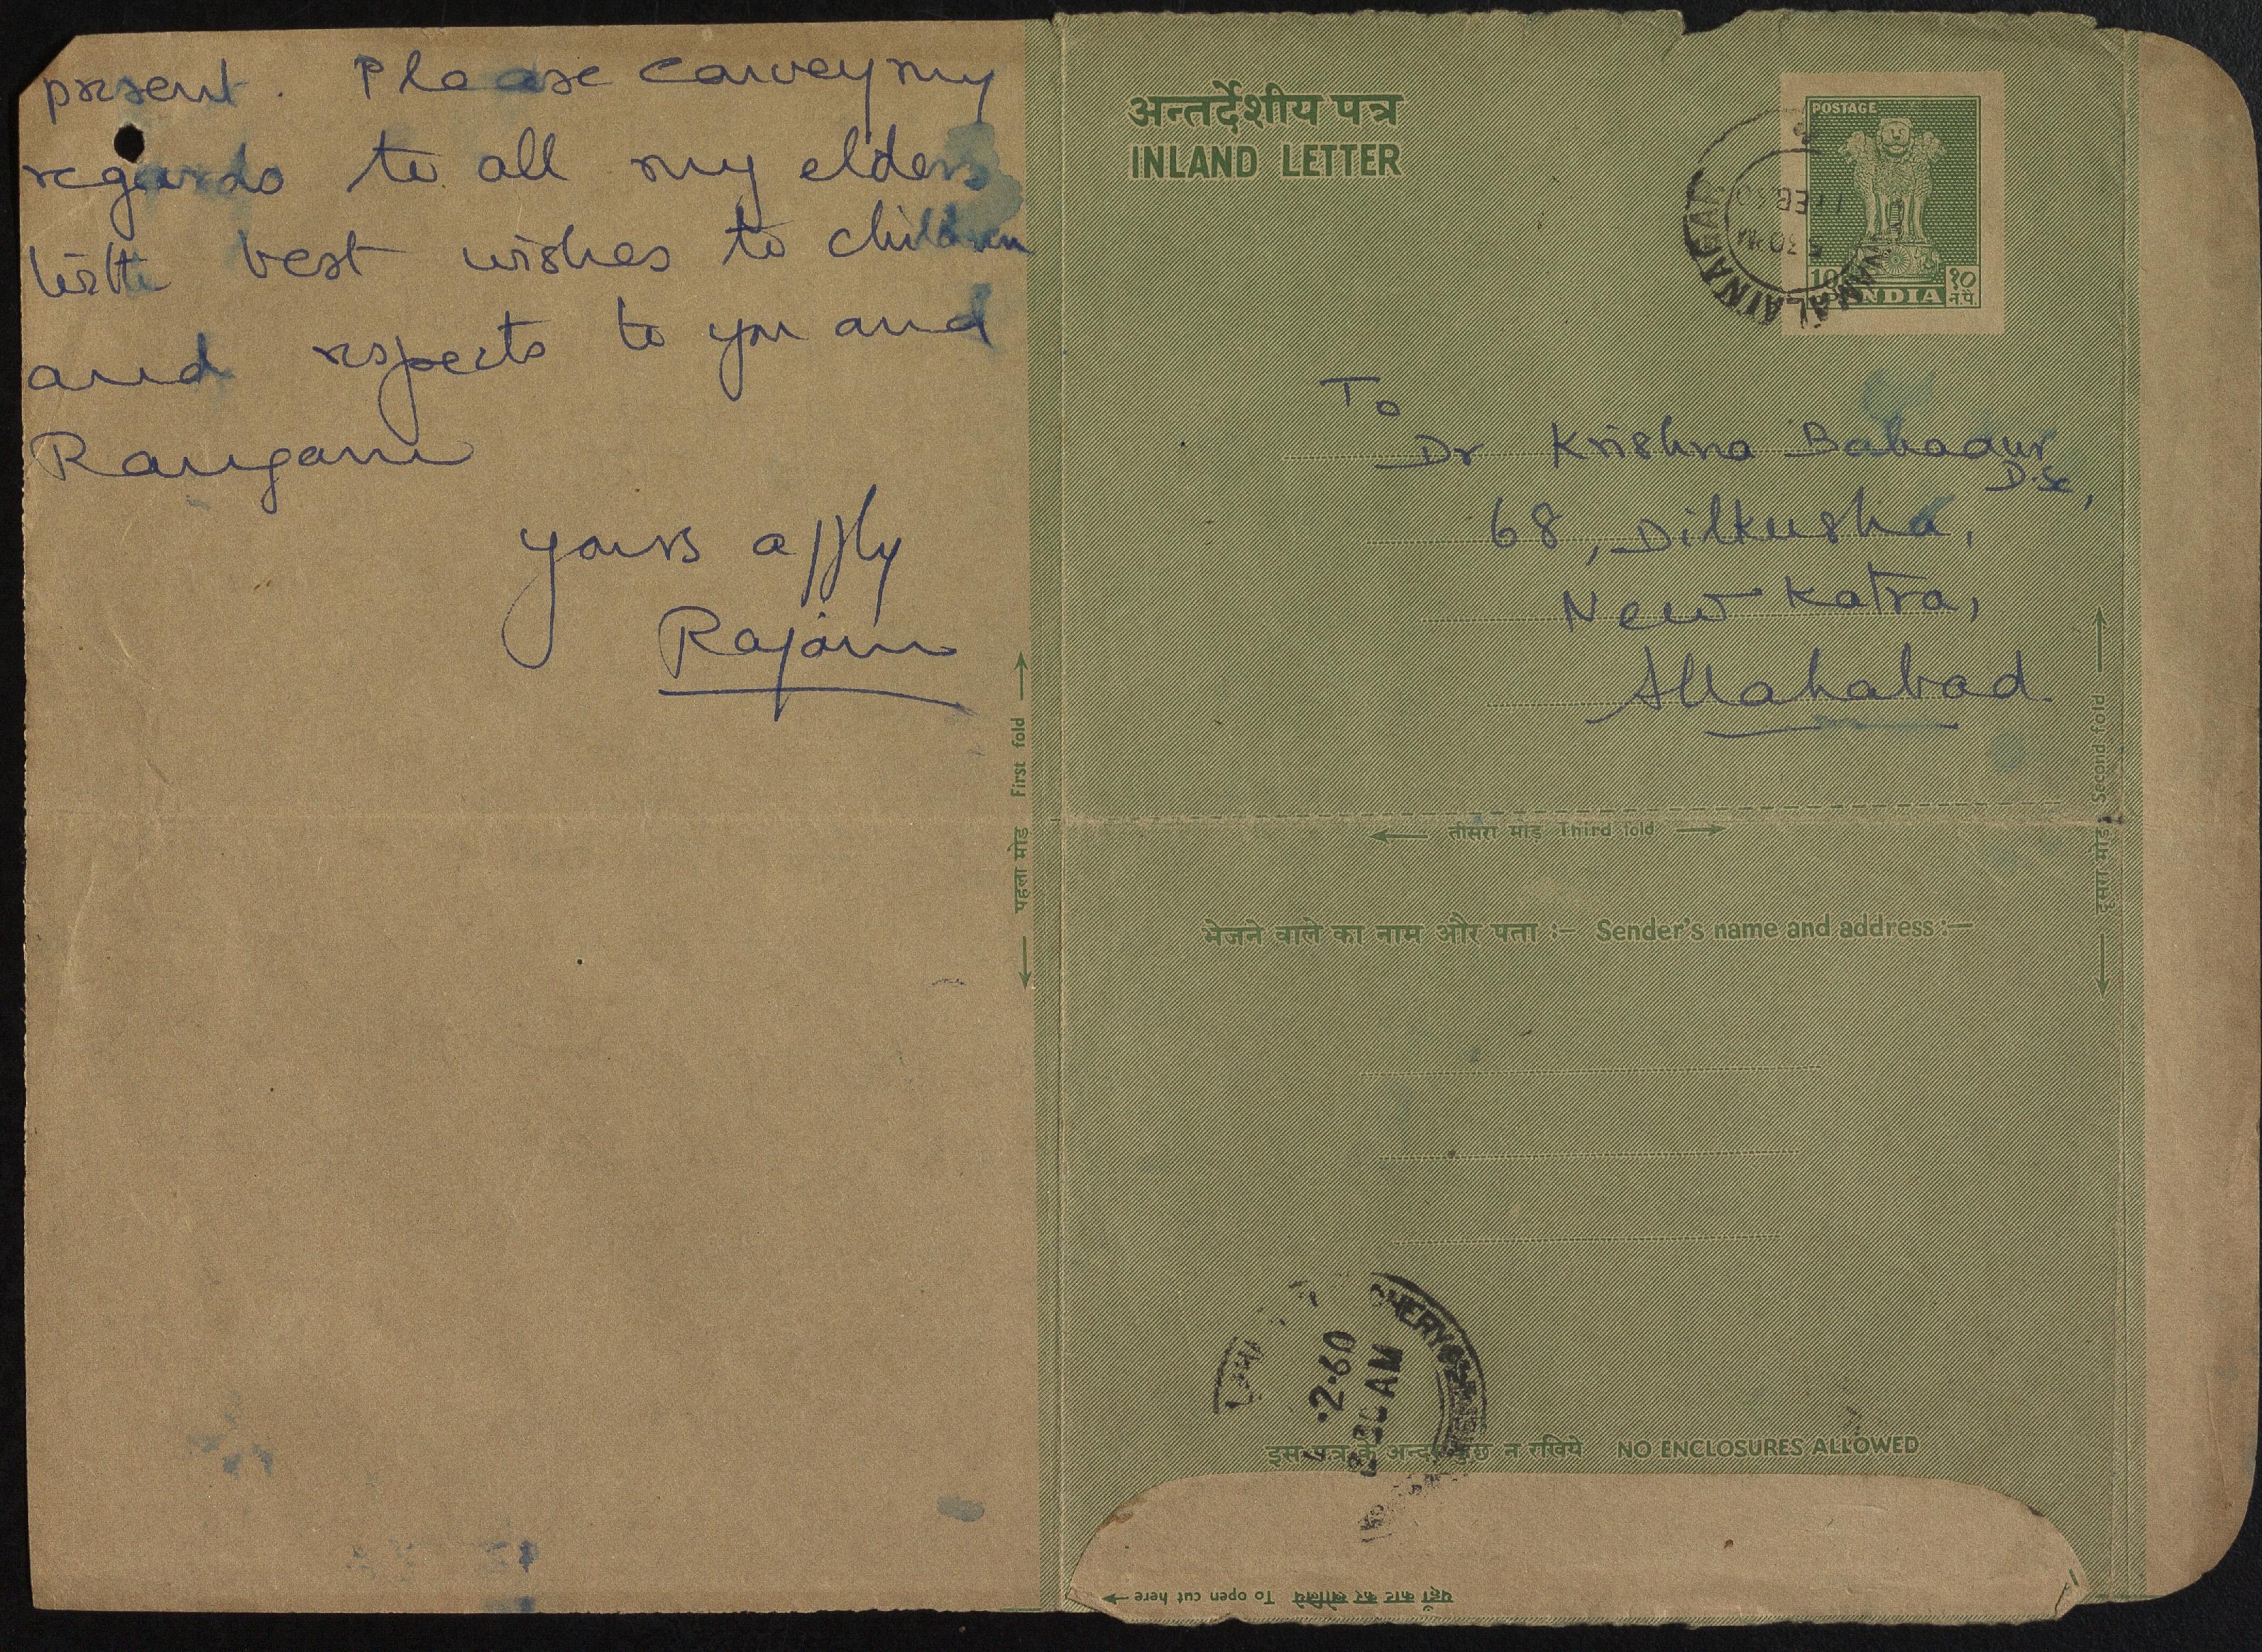 present. Please convey my
regards to all my elders
with best wishes to children
and respects to you and
Rangam
yours affly
Rajam
पहला मोड़ First fold
अन्तर्देशीय पत्र
INLAND LETTER
POSTAGE
10
१०
न.पै.
INDIA
ANNAMALAINAGAR
FEB 60
5 30 PM
To
Dr Krishna Bahadur
D.Sc,
68, Dilkusha,
New Katra,
Allahabad
दूसरा मोड़ Second fold
तीसरा मोड़ Third fold
भेजने वाले का नाम और पता :- Sender's name and address :-
2.60
AM
इस पत्र के अन्दर कुछ न रखिये NO ENCLOSURES ALLOWED
यहाँ काट कर खोलिये To open cut here